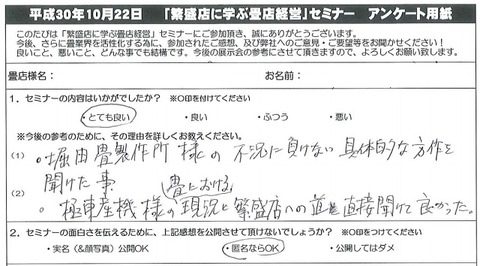 平成30年10月22日 「繁盛店に学ぶ畳店経営」セミナー アンケート用紙
このたびは「繁盛店に学ぶ畳店経営」セミナーにご参加頂き、誠にありがとうございます。
今後、さらに畳業界を活性化する為に、参加されたご感想、及び弊社へのご意見・ご要望等をお聞かせください！
良いこと、悪いこと、どんな事でも結構です。今後の展示会の参考にさせて頂きますので、よろしくお願い致します。
畳店様名： お名前：
1．セミナーの内容はいかがでしたか？ ※○印を付けてください
・とても良い ・良い ・ふつう ・悪い
※今後の参考のために、その理由を詳しくお教えください。
(1) 。堀田畳製作所様の不況に負けない具体的な方作を
聞けた事
(2) 。極東産機様の畳における現況と繁盛店への道を直接聞けて良かった。
2．セミナーの面白さを伝えるために、上記感想を公開させて頂けないでしょうか？ ※○印をつけてください
・実名（&顔写真）公開OK ・匿名ならOK ・公開してはダメ